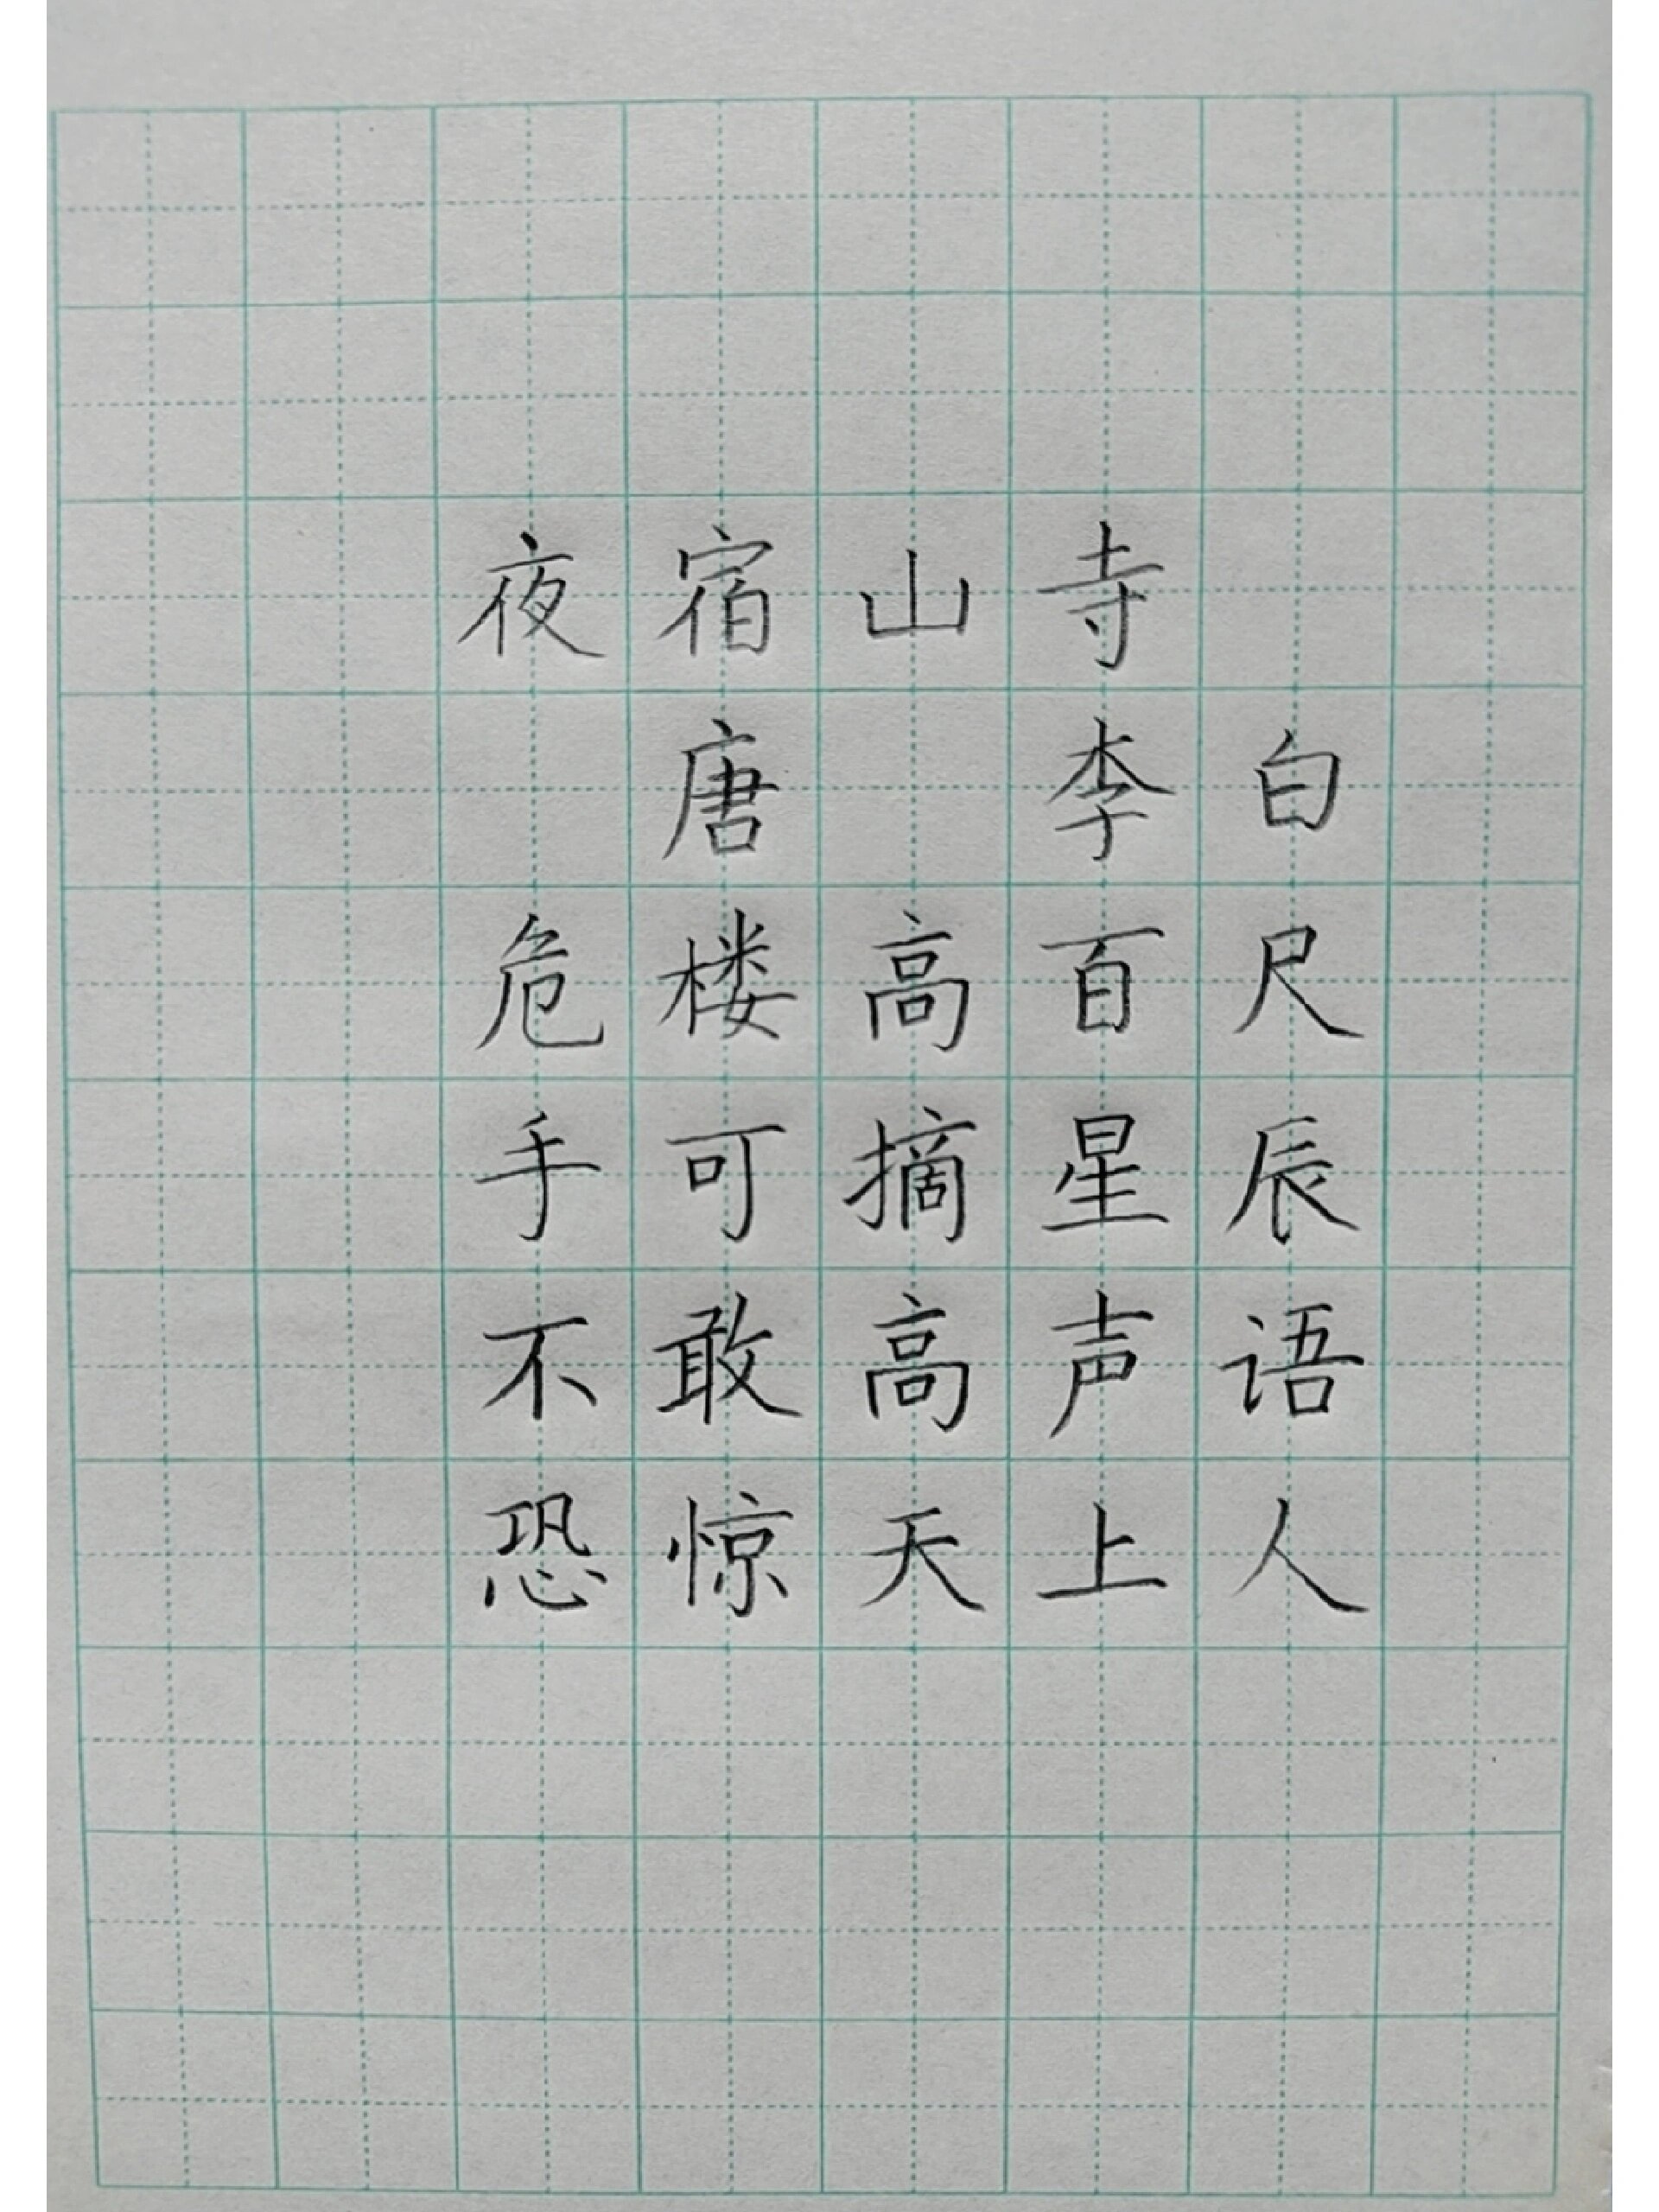 夜宿山寺
唐 李白
危楼高百尺
手可摘星辰
不敢高声语
恐惊天上人